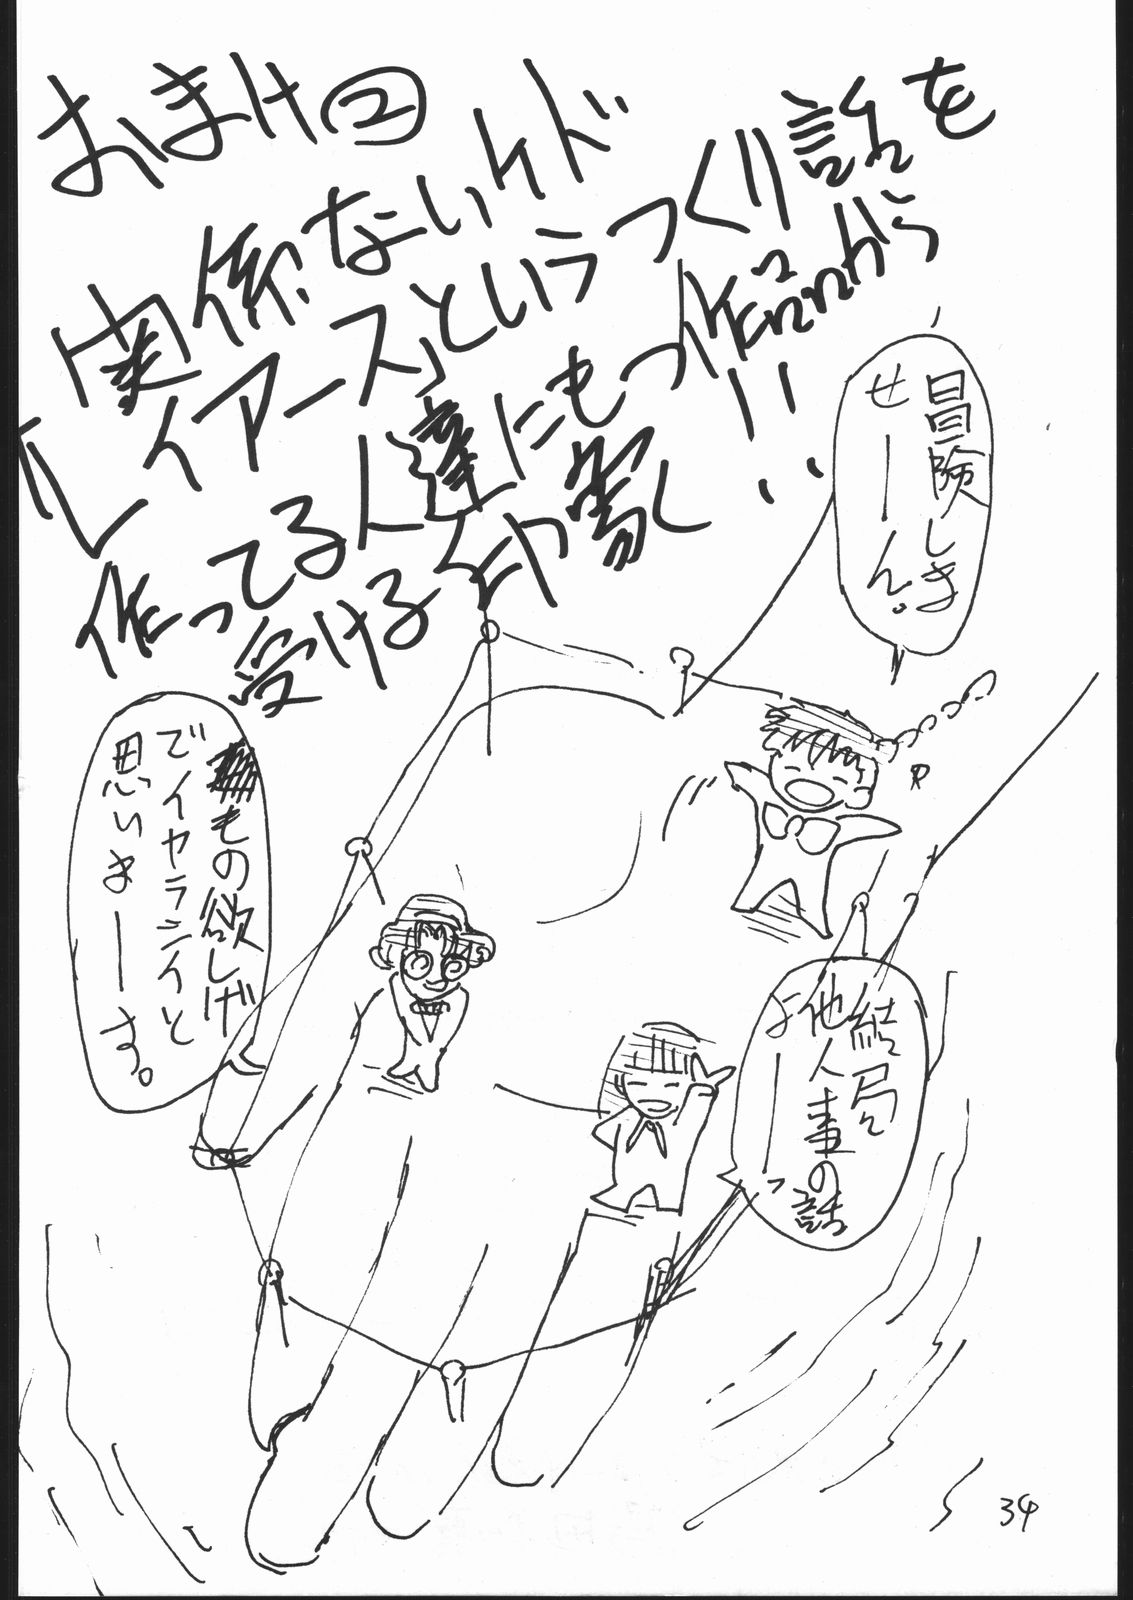 おまけ②
関係ないケド
「レイアース」というつくり話を
作ってる人達にもつ作品から
受ける印象!!
冒険しま
せーん。
もの欲しげ
でイヤラシイと
思いまーす。
結局
他人事の話
よーっ
34